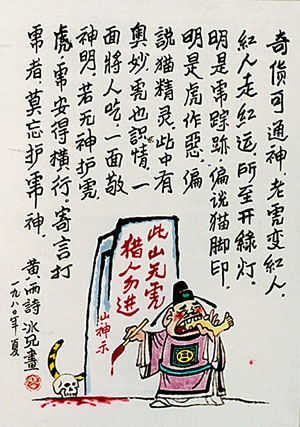 奇货可通神.老虎变紅人.
紅人走紅运.所至开緑灯.
明是虎踪跡.偏说猫脚印.
明是虎作恶.偏
説猫精灵.此中有
奥妙.虎也識情.一
面将人吃.一面敬
神明.若无神护虎.
虎安得横行.寄言打
虎者.莫忘护虎神.
黄雨詩 冰兄畫
一九八〇年夏
此山无虎
猎人勿进
山神示